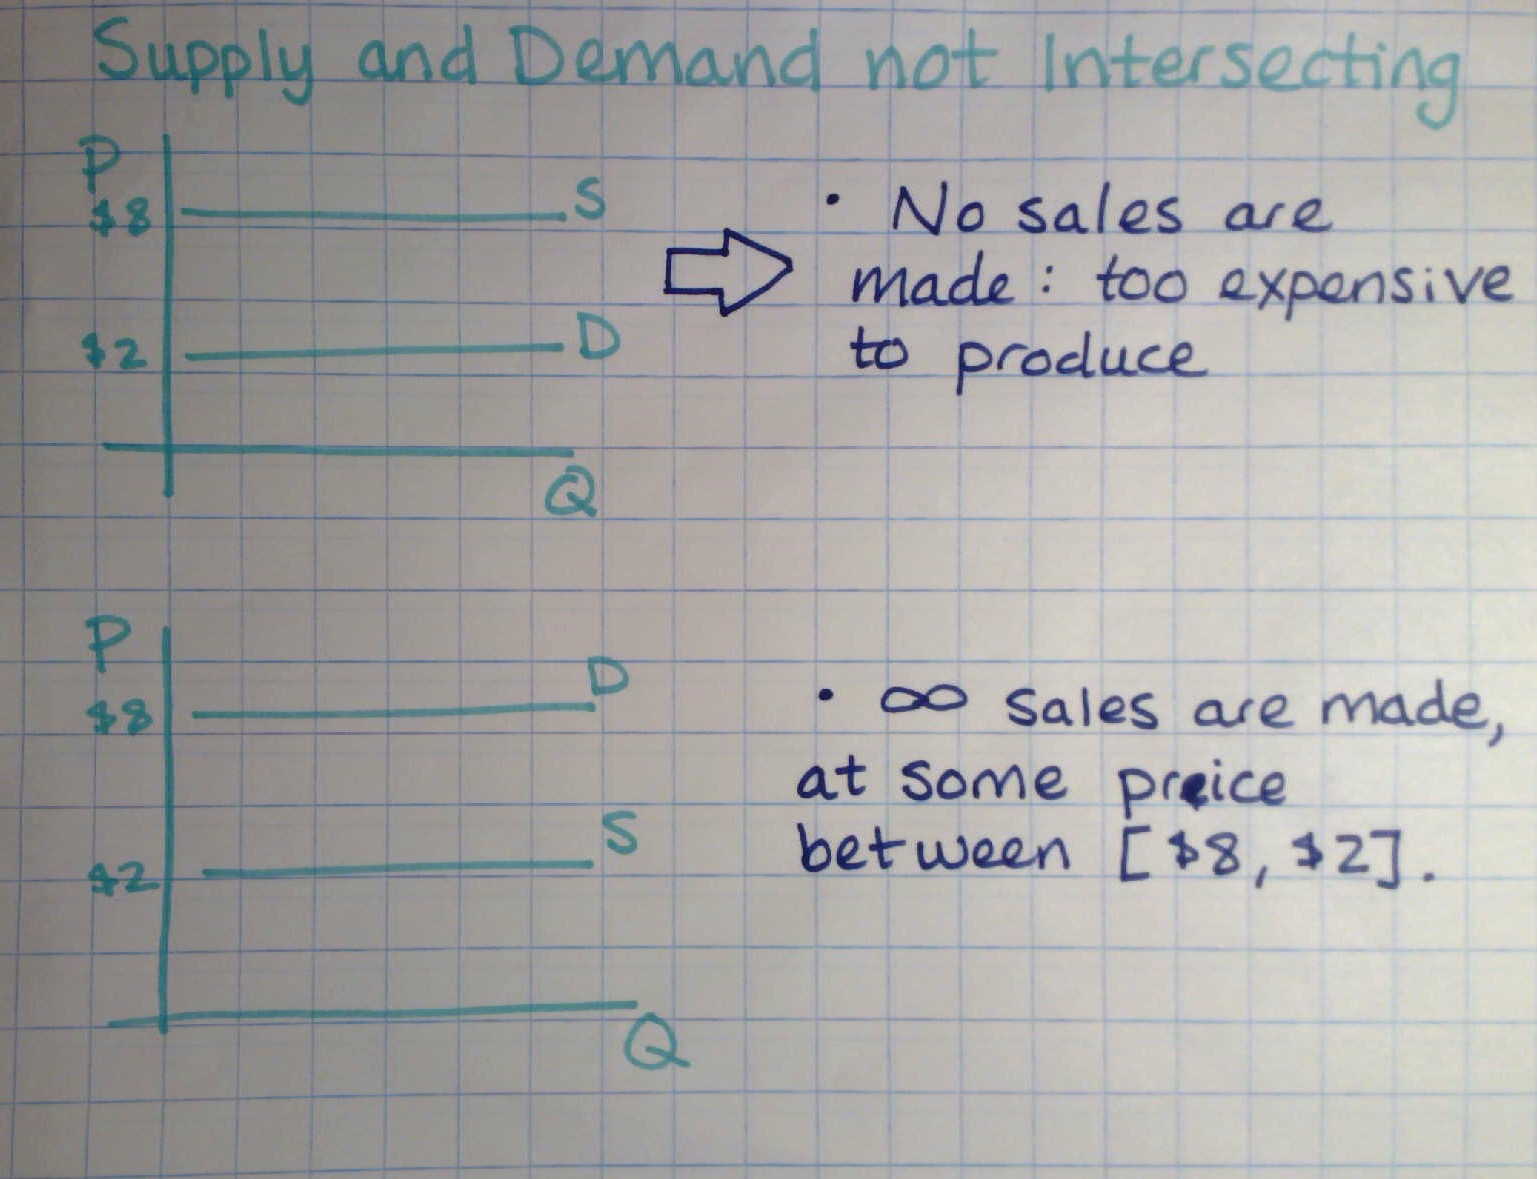 Supply and Demand not Intersecting
P
$8
S
$2
D
Q
· No sales are
made: too expensive
to produce
P
D
$8
S
$2
Q
· ∞ sales are made,
at some price
between [$8, $2].